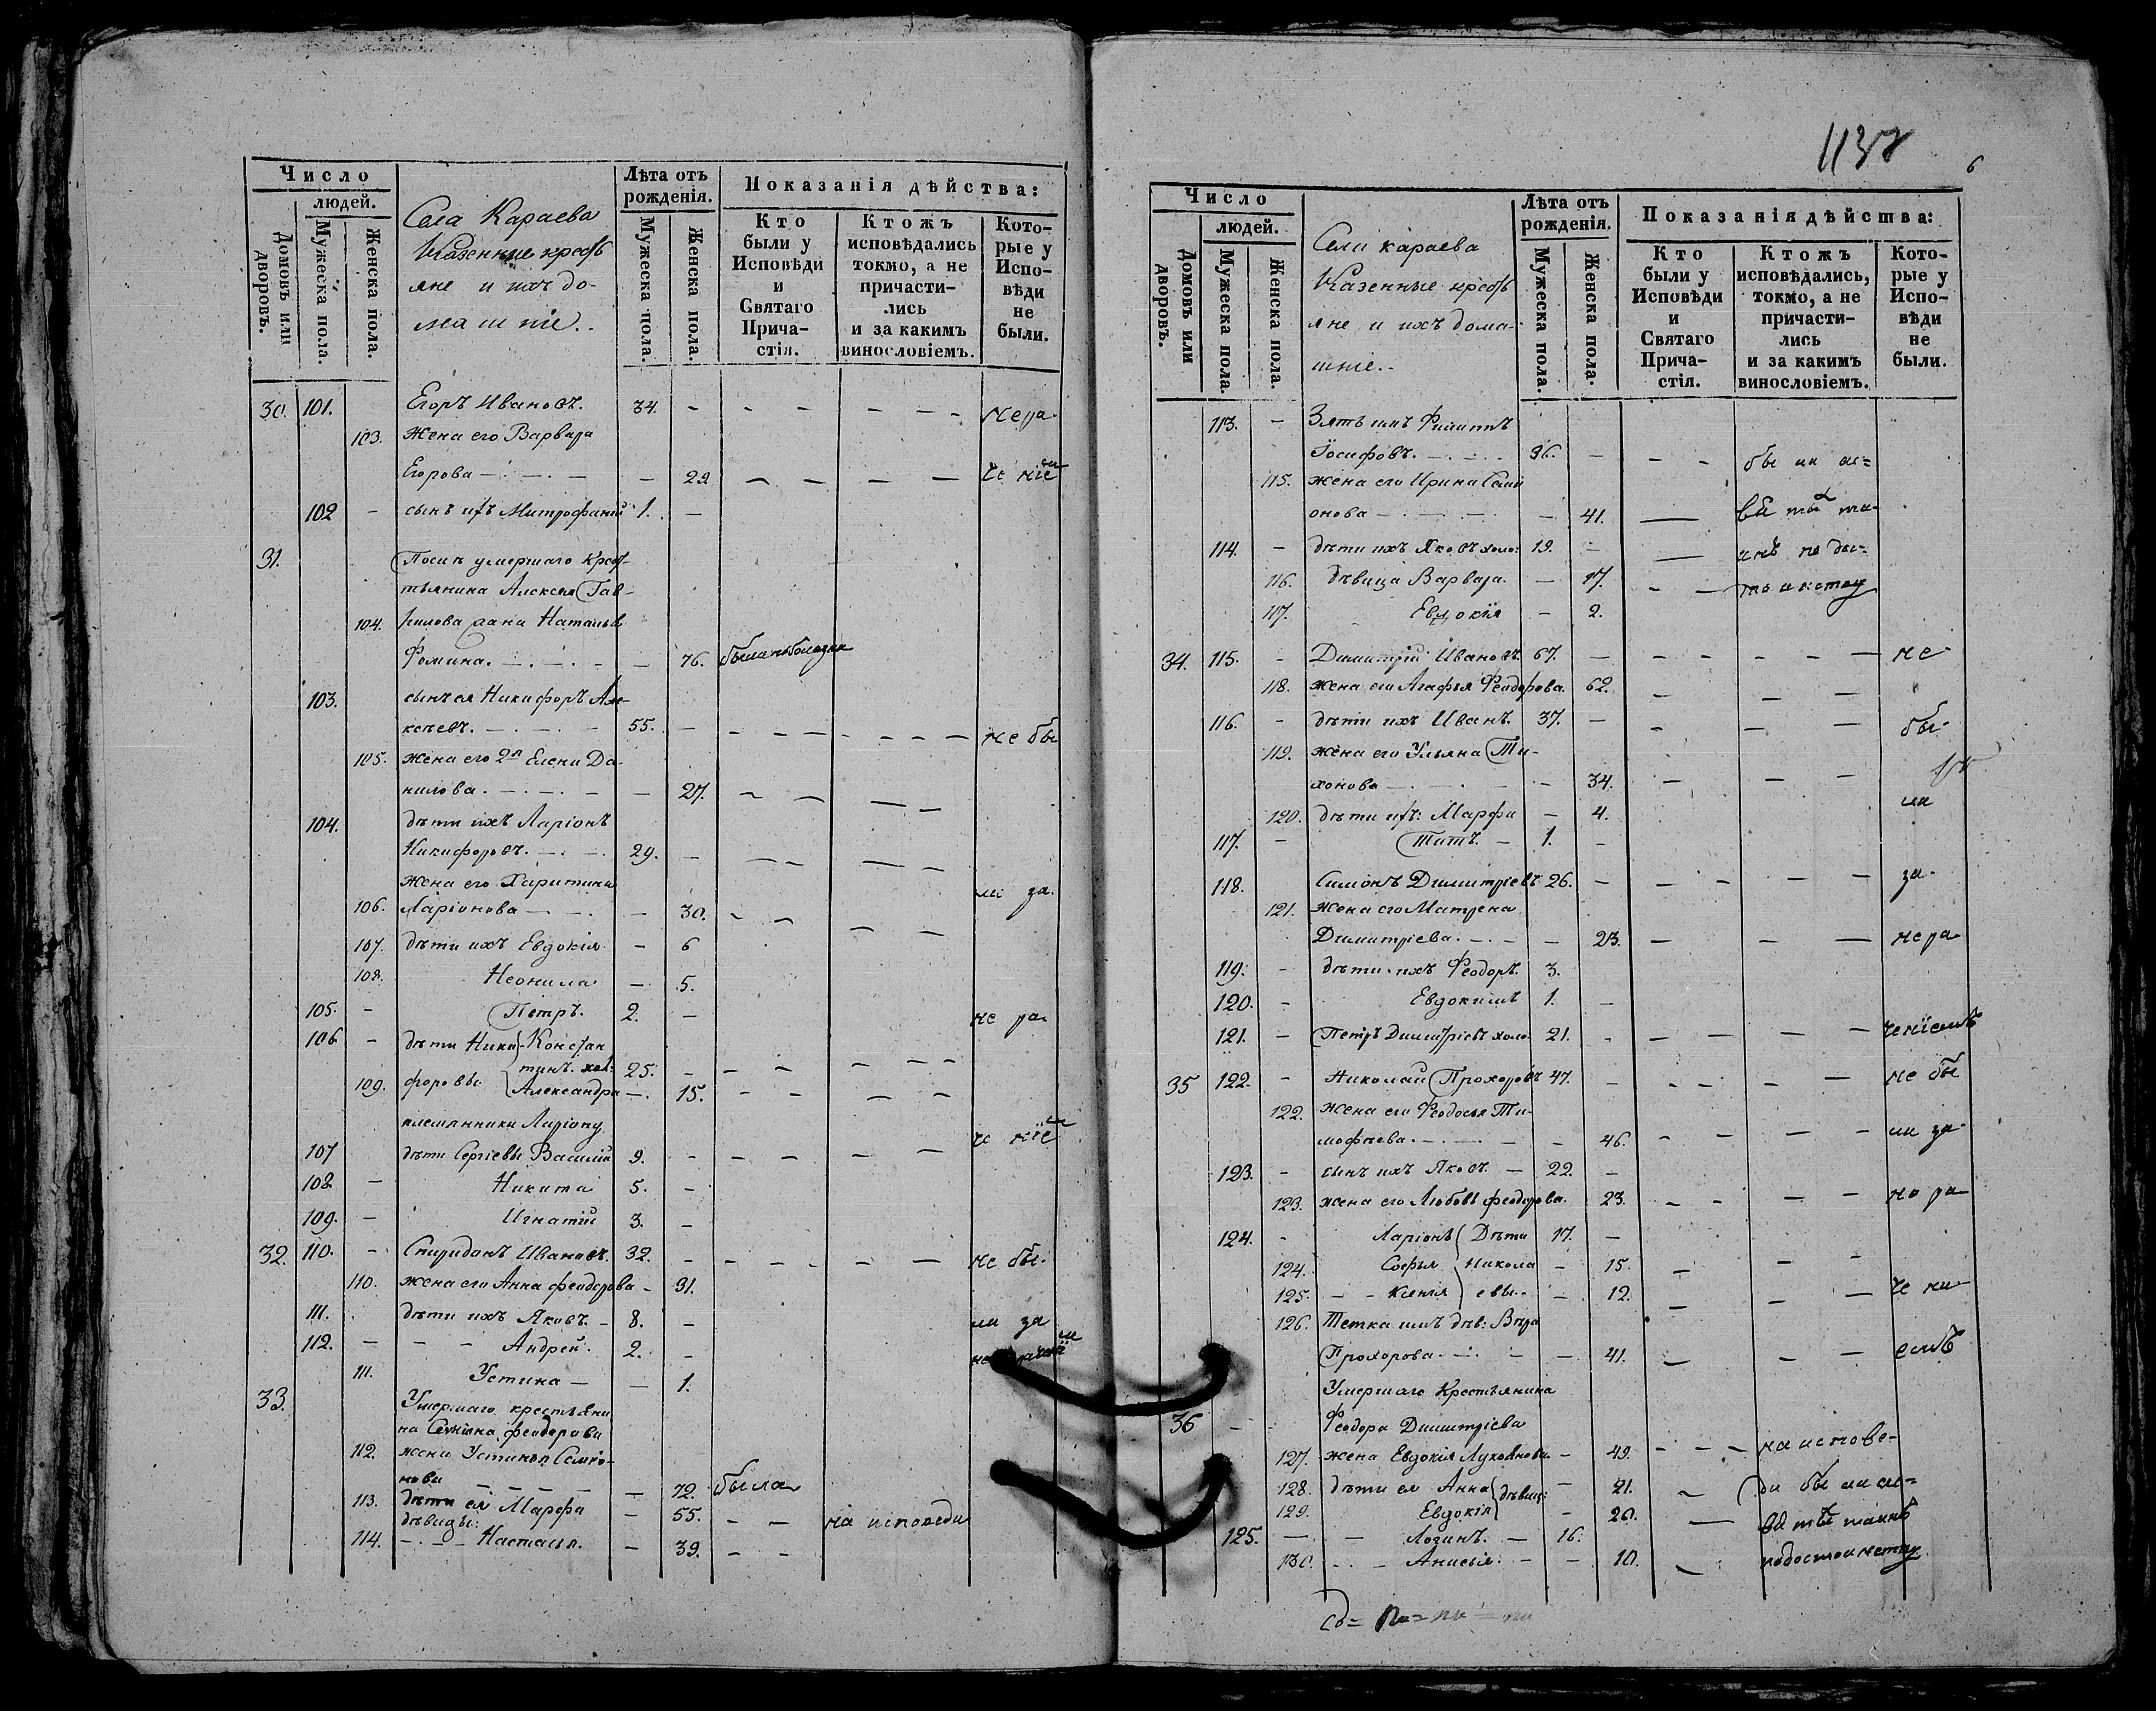 Число
людей.
Домовъ или дворовъ.
Мужеска пола.
Женска пола.
Села Караева
Казенные кресть
яне и ихъ до-
машніе.
Лѣта отъ
рожденія.
Мужеска пола.
Женска пола.
Показанія дѣйства:
Кто
были у
Исповѣди
и
Святаго
Прича-
стія.
Ктожъ
исповѣдались
токмо, а не
причасти-
лись
и за какимъ
винословіемъ.
Кото-
рые у
Испо-
вѣди
не
были.
30. 101. Егоръ Ивановъ. 34. - - - - - - нера-
103. Жена его Варвара
Егорова - - 29 - - - - че ніе
102 - сынъ ихъ Митрофаній 1. -
31. Послѣ умершаго Крес-
тьянина Алексѣя Гав-
104. рилова жена Наталья
Фомина. - 76. была
103. сынъ ея Никифоръ Але-
ксѣевъ. - 55. - - - - - не бы
105. жена его 2я Елена Да-
нилова. - 27. - - - -
104. дѣти ихъ Ларіонъ
Никифоровъ. - 29. - - - -
жена его Харитина ли за
106. Ларіонова - 30. - - - -
107. дѣти ихъ Евдокія - 6
108. Неонила - 5.
105. - Петръ. 2. - не ра-
106 - дѣти Ники- Констан
тинъ. хол: 25. - - - -
109. форовы Александра - 15. - - - -
племянники Ларіону
че ніе
107 дѣти Сергіевы Василій 9. - - - - -
108 - Никита 5. -
109. - Игнатій 3. -
32. 110. - Спиридонъ Ивановъ. 32. - - - - - не бы-
110. жена его Анна Феодорова - 31.
111. дѣти ихъ Яковъ. - 8. - ли за
112. - - - Андрей. 2. -
111. Устина - - 1.
33. Умершаго крестьяни
на Семіона Феодорова
112. жена Устинья Семіо-
нова - 72. была
113. дѣти ея Марфа
дѣвицы: - 55. - - на исповеди
114. - - - Настасья. - 39. - -
1137
6
Число
людей.
Домовъ или дворовъ.
Мужеска пола.
Женска пола.
Села Караева
Казенные кресть
яне и ихъ дома-
шніе.
Лѣта отъ
рожденія.
Мужеска пола.
Женска пола.
Показанія дѣйства:
Кто
были у
Исповѣди
и
Святаго
Прича-
стія.
Ктожъ
исповѣдались,
токмо, а не
причасти-
лись
и за какимъ
винословіемъ.
Кото-
рые у
Испо-
вѣди
не
были.
113. - Зять имъ Филиппъ
Іосифовъ. - 36. - - - бы ли
115. жена его Ирина Семі
онова - - 41. -
114. - дѣти ихъ Яковъ холо: 19. - -
116. дѣвица Варвара. - 17. - -
117. Евдокія - 2.
34. 115. - Димитрій Ивановъ. 67. - - - - - - не
118. жена его Агафья Феодорова. 62. - - -
116. - дѣти ихъ Иванъ. 37. - - - - бы-
119. жена его Ульяна Ти-
хонова - - 34. - - -
ли
120. дѣти ихъ: Марфа - 4.
117. - Титъ. - 1. -
118. Симіонъ Димитріевъ 26. - - - - - за-
121. жена его Матрена
Димитріева. - - 23. - - - нера-
119. - дѣти ихъ Феодоръ. 3.
120. - Евдокимъ 1. -
121. - Петръ Димитріевъ холо 21. - - - - - ченіемъ
35 122. - Николай Прохоровъ 47. - - - - - не бы
122. жена его Феодосья Ти-
мофеева. - - 46. - - - - ли за-
123. - сынъ ихъ Яковъ. - 22. -
123. жена его Любовь Феодорова. 23. - - - - не ра
124. - Ларіонъ Дѣти 17. -
124. Софья Никола - 15. - -
125. - - Ксенія евы. - 12. - - - че ні-
126. Тетка имъ дѣв: Вѣра
Прохорова. - - 41. - - - емъ
Умершаго Крестьянина
36 - - Феодора Димитріева
127. жена Евдокія Лукіянова. - 49. - - - на испове-
128. дѣти ея Анна дѣвиц: - 21. - ди бы ли
129. Евдокія - 20. -
125. - - Логинъ. - 16.
130. - - Анисья: - - 10. -